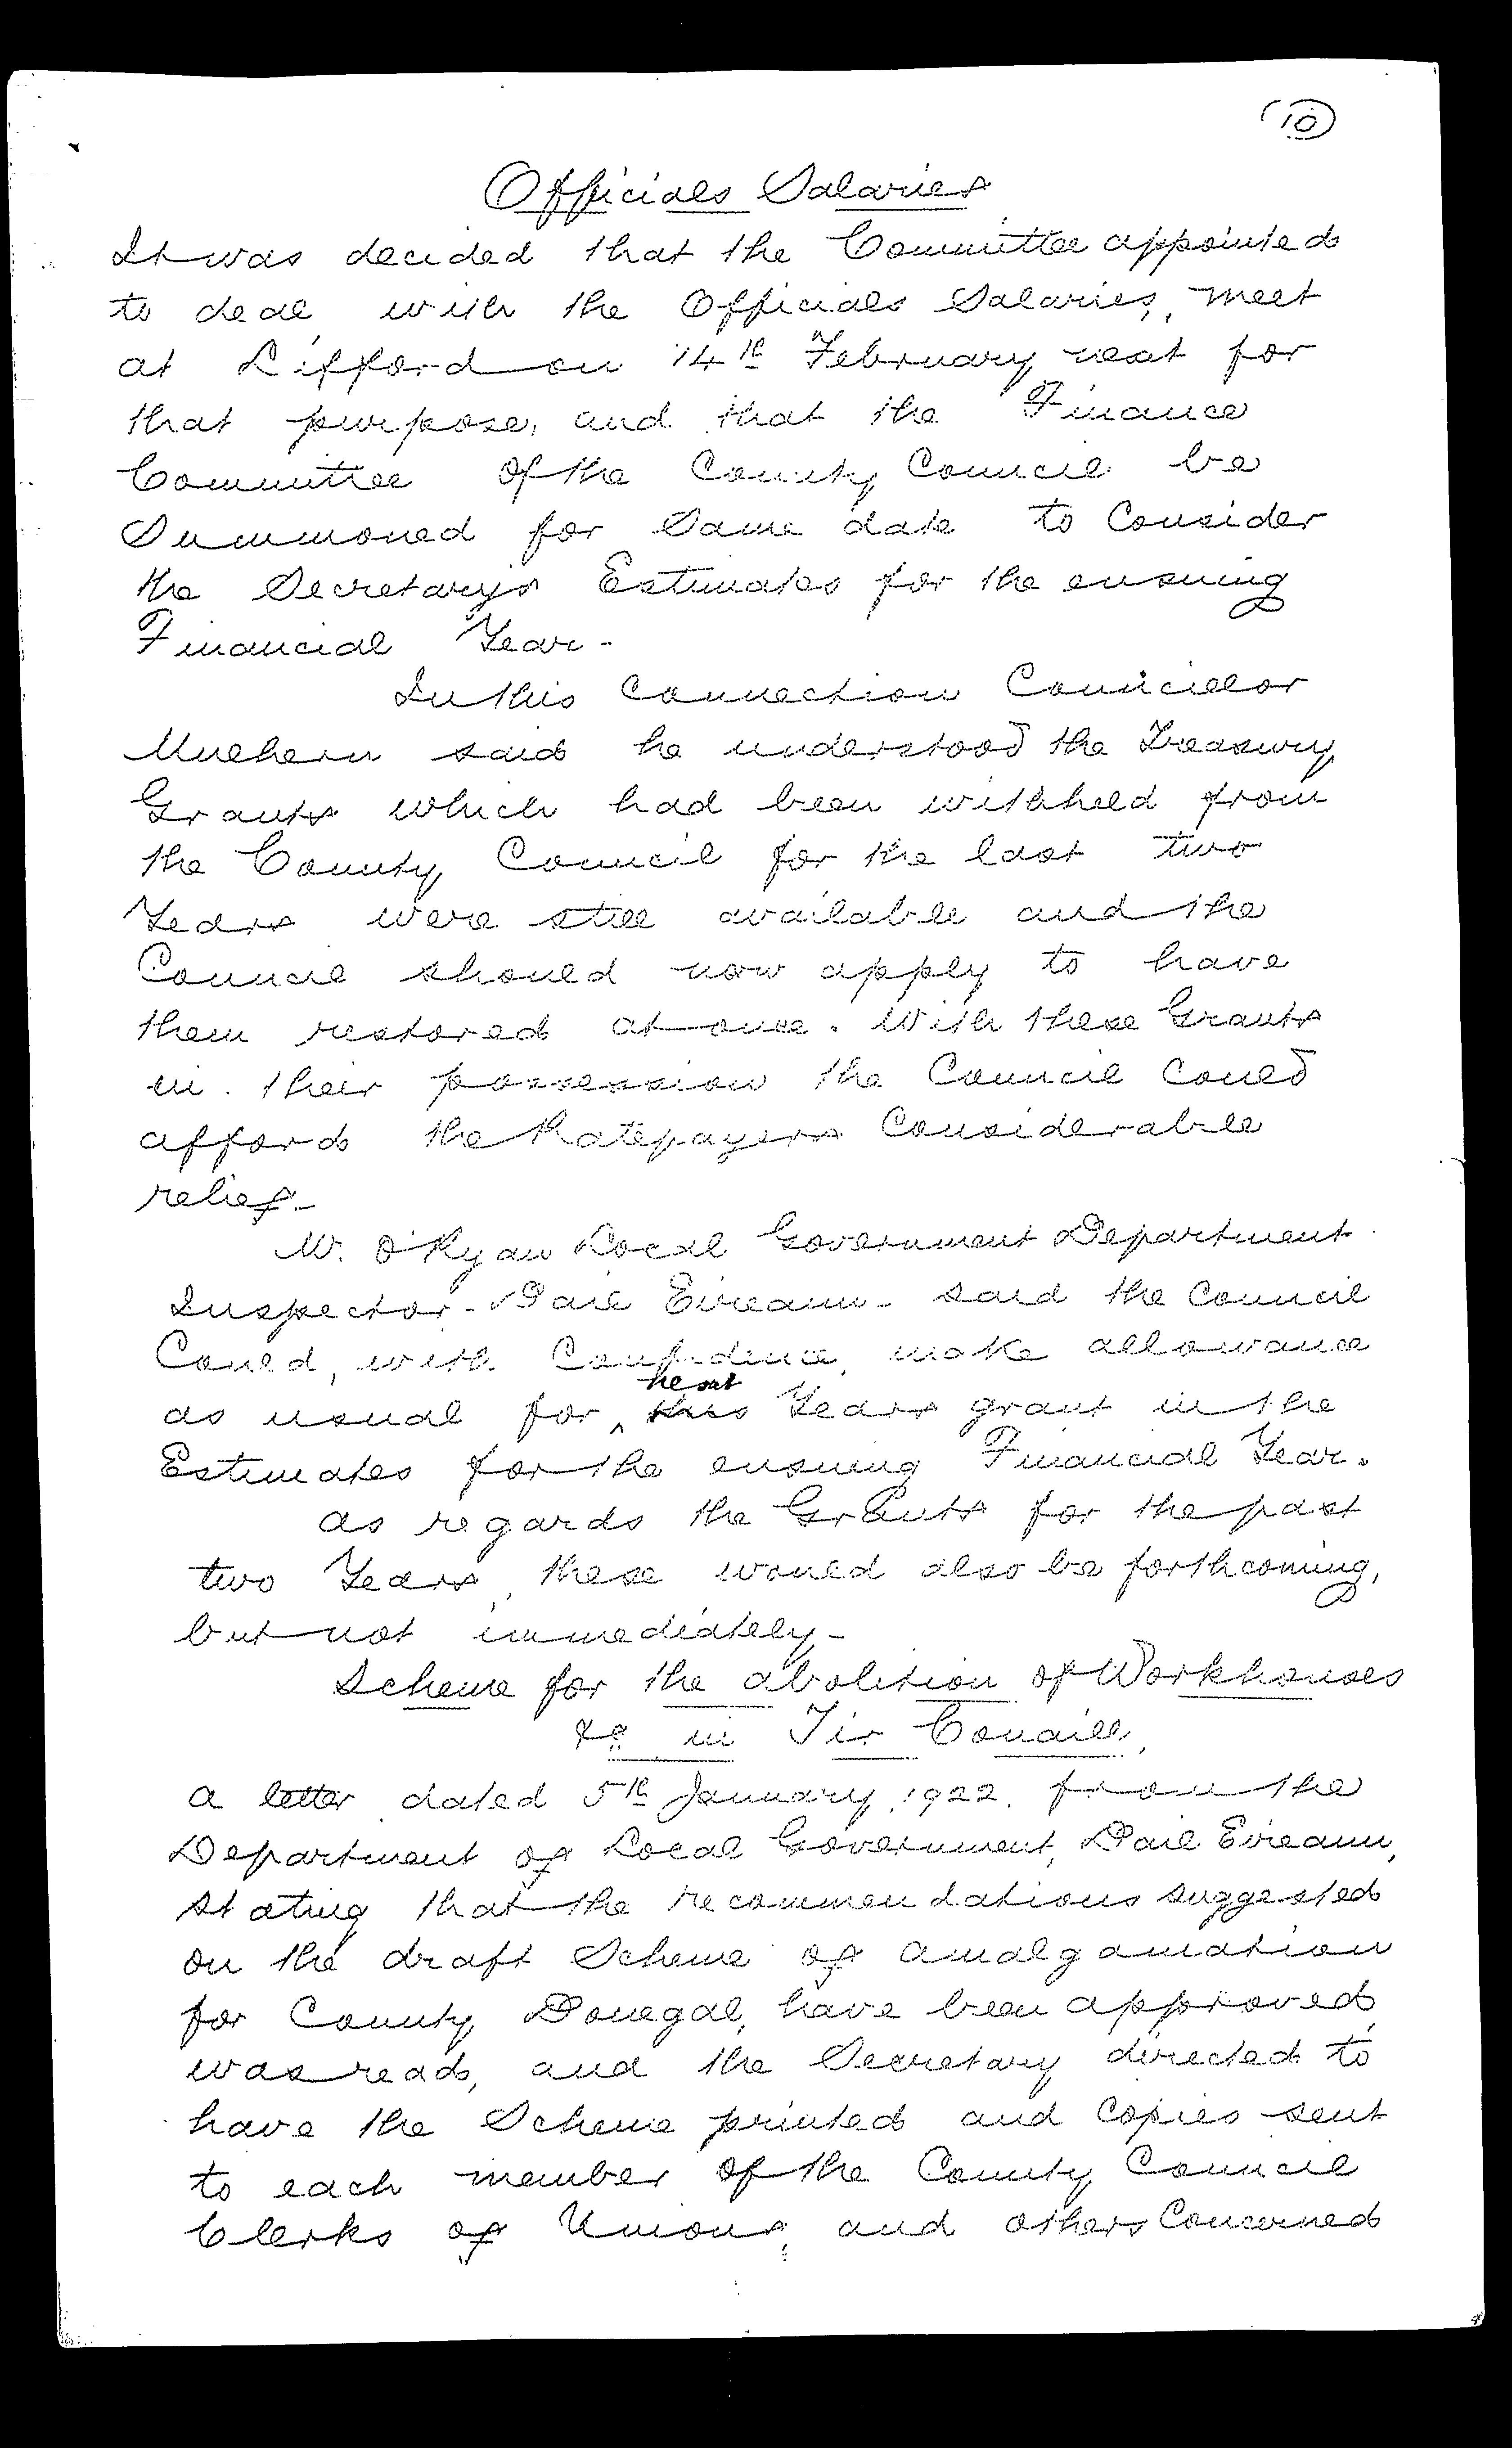 10
Officials Salaries
It was decided that the Committee appointed
to deal with the Officials Salaries, meet
at Lifford on 14th February next for
that purpose, and that the Finance
Committee of the County Council be
Summoned for Same date to Consider
the Secretary's Estimates for the ensuing
Financial Year -
In this Connection Councillor
Mulhern said he understood the Treasury
Grants which had been withheld from
the County Council for the last two
Years were still available and the
Council should now apply to have
them restored at once. With these Grants
in their possession the Council could
afford the Ratepayers Considerable
relief -
W. O'Ryan Local Government Department
Inspector - Dail Eireann - said the Council
Could, with Confidence, make allowance
next
as usual for ^ this Years grant in the
Estimates for the ensuing Financial Year.
As regards the Grants for the past
two Years, these would also be forthcoming,
but not immediately -
Scheme for the abolition of Workhouses
&c in Tir Conaill.
A letter dated 5th January, 1922, from the
Department of Local Government, Dail Eireann,
stating that the recommendations suggested
on the draft Scheme of Amalgamation
for County Donegal, have been approved
was read, and the Secretary directed to
have the Scheme printed and Copies sent
to each member of the County Council
Clerks of Unions, and others Concerned